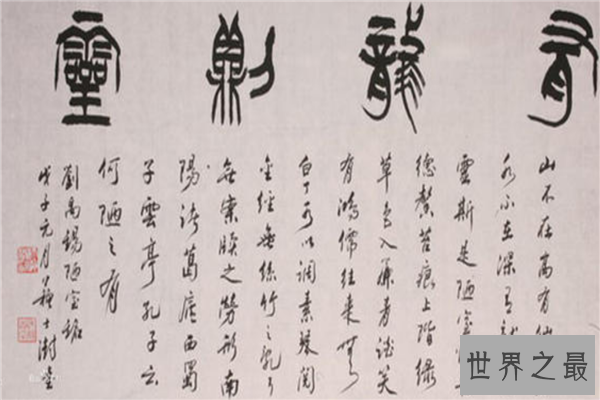 有龍則靈
山不在高有仙
水不在深有龍
靈斯是陋室
德馨苔痕上階綠
草色入簾青談笑
有鴻儒往來無
白丁可以調素琴閱
金經無絲竹之亂耳
無案牘之勞形南
陽諸葛廬西蜀
子雲亭孔子云
何陋之有
劉禹錫陋室銘
戊子元月蘇士澍書
世界之最